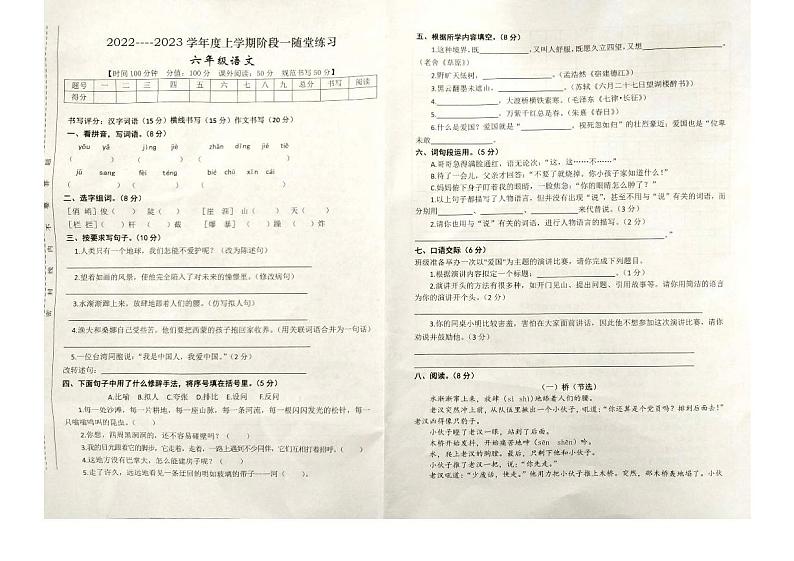 2022----2023 学年度上学期阶段一随堂练习
六年级语文
【时间100分钟 分值：100分 课外阅读：50分 规范书写50分】
题号 一 二 三 四 五 六 七 八 九 总分 书写 阅读
得分
书写评分：汉字词语（15分）横线书写（15分）作文书写（20分）
一、看拼音，写词语。（8分）
yǒu yǎ jìng jiè zhān dīng jié tiě
（ ） （ ） （ ）
jū sāng fèi téng bié chū xīn cái
（ ） （ ） （ ）
二、选字组词。（8分）
［俏 峭］俊（ ） 陡（ ） ［崖 涯］山（ ） 天（ ）
［栏 拦］杆（ ） 截 ［爆 暴］（ ）躁 （ ）炸
三、按要求写句子。（10分）
1.人类只有一个地球，我们怎能不爱护呢？（改为陈述句）
2.望着如画的风景，使他完全陷入了对未来的憧憬里。（修改病句）
3.水渐渐蹿上来，放肆地舔着人们的腰。（仿写拟人句）
4.渔夫和桑娜自己受些苦，他们要把西蒙的孩子抱回家收养。（用关联词语合并为一句话）
5.一位台湾同胞说：“我是中国人，我爱中国。”（2分）
改转述句：
四、下面句子中用了什么修辞手法，将序号填在括号里。（5分）
A.比喻 B.拟人 C.夸张 D.排比 E.设问 F.反问
1.每一处沙滩，每一片耕地，每一座山脉，每一条河流，每一根闪闪发光的松针，每一
只嗡嗡鸣叫的昆虫。（ ）
2.你想，四周黑洞洞的，还不容易碰壁吗？（ ）
3.我的目光跟着它的脚步，它走着，走着，一路上遇到不少同伴，它们互相打着招呼。（ ）
4.这地方没有巴掌大，怎么能建房子呢？（ ）
5.走了许久，远远地看见一条迂回的明如玻璃的带子——河（ ）。
五、根据所学内容填空。（8分）
1.这种境界，既，又叫人舒服，既愿久立四望，又想，
（老舍《草原》）
2.野旷天低树，。（孟浩然《宿建德江》）
3.黑云翻墨未遮山，。（苏轼《六月二十七日望湖楼醉书》）
4.，大渡桥横铁索寒。（毛泽东《七律•长征》）
5.，万紫千红总是春。（朱熹《春日》）
6.什么是爱国？爱国就是“，视死忽如归”的壮烈豪迈；爱国也是“位卑
未敢”。
六、词句段运用。（5分）
A.哥哥急得满脸通红，语无论次：“这，这……不……”
B.待了一会儿，父亲才回答：“不要了就烧掉，你小孩子家知道什么！”
C.妈妈俯下身子盯着我的眼睛，一脸焦急：“你的眼睛怎么肿了？”
1.以上句子都描写了人物语言，但并没有出现“说”，甚至不用与“说”有关的词语，而
分别用、、来代替说。（3分）
2.请你也用与“说”有关的词语，进行人物语言的描写。（2分）
七、口语交际（6分）
班级准备举办一次以“爱国”为主题的演讲比赛，请你完成下列题目。
1.根据演讲内容拟定一个标题：。（1分）
2.演讲开头的方法有很多种，如开门见山、提出问题、引用故事等。请你用简洁的语言
为你的演讲开个头。（2分）
3.你的同桌小明比较害羞，害怕在大家面前讲话，因此他不想参加这次演讲比赛，请你
劝说并鼓励他。（3分）
八、阅读。（8分）
（一）桥（节选）
水渐渐窜上来，放肆（sì shì）地舔着人们的腰。
老汉突然冲上前，从队伍里揪出一个小伙子，吼道：“你还算是个党员吗？排到后面去！”
老汉凶得像只豹子。
小伙子瞪了老汉一眼，站到了后面。
木桥开始发抖，开始痛苦地呻（sēn shēn）吟。
水，爬上老汉的胸膛。最后，只剩下他和小伙子。
小伙子推了老汉一把，说：“你先走。”
老汉吼道：“少废话，快走。”他用力把小伙子推上木桥。突然，那木桥轰地塌了。小伙